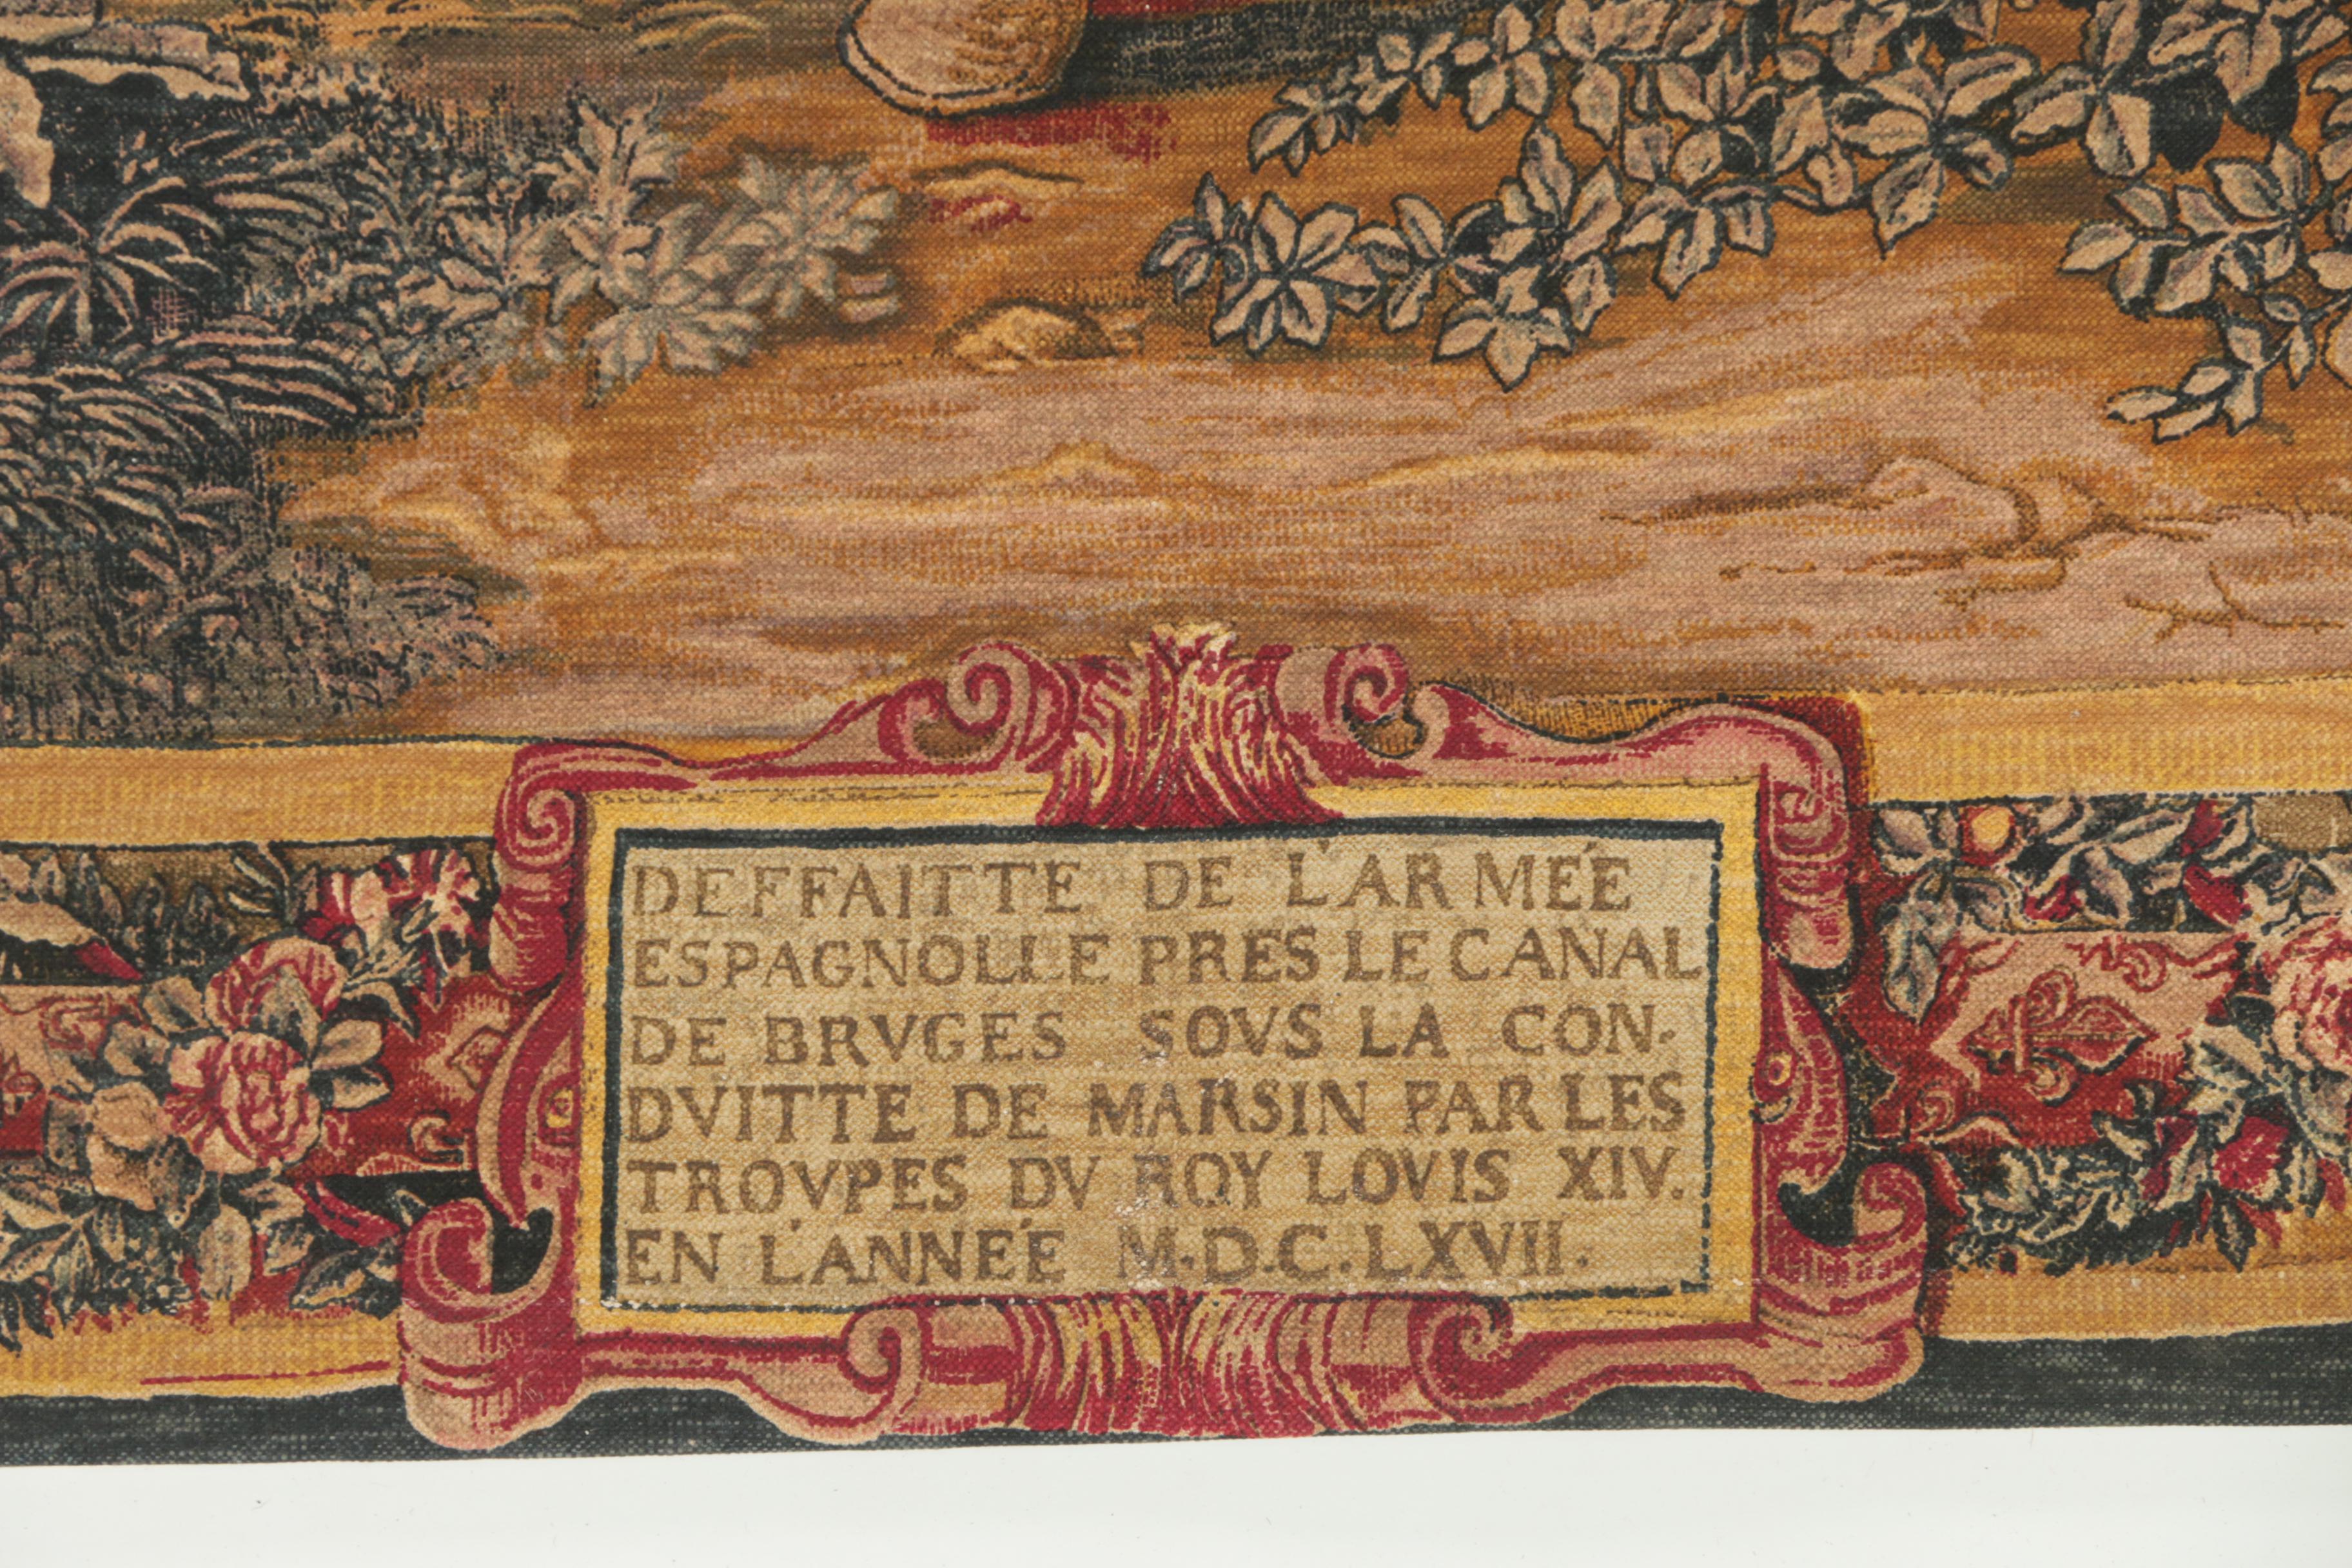 DEFFAITTE DE L'ARMÉE
ESPAGNOLLE PRES LE CANAL
DE BRVGES SOVS LA CON-
DVITTE DE MARSIN PAR LES
TROVPES DV ROY LOVIS XIV.
EN L'ANNÉE M.D.C.LXVII.